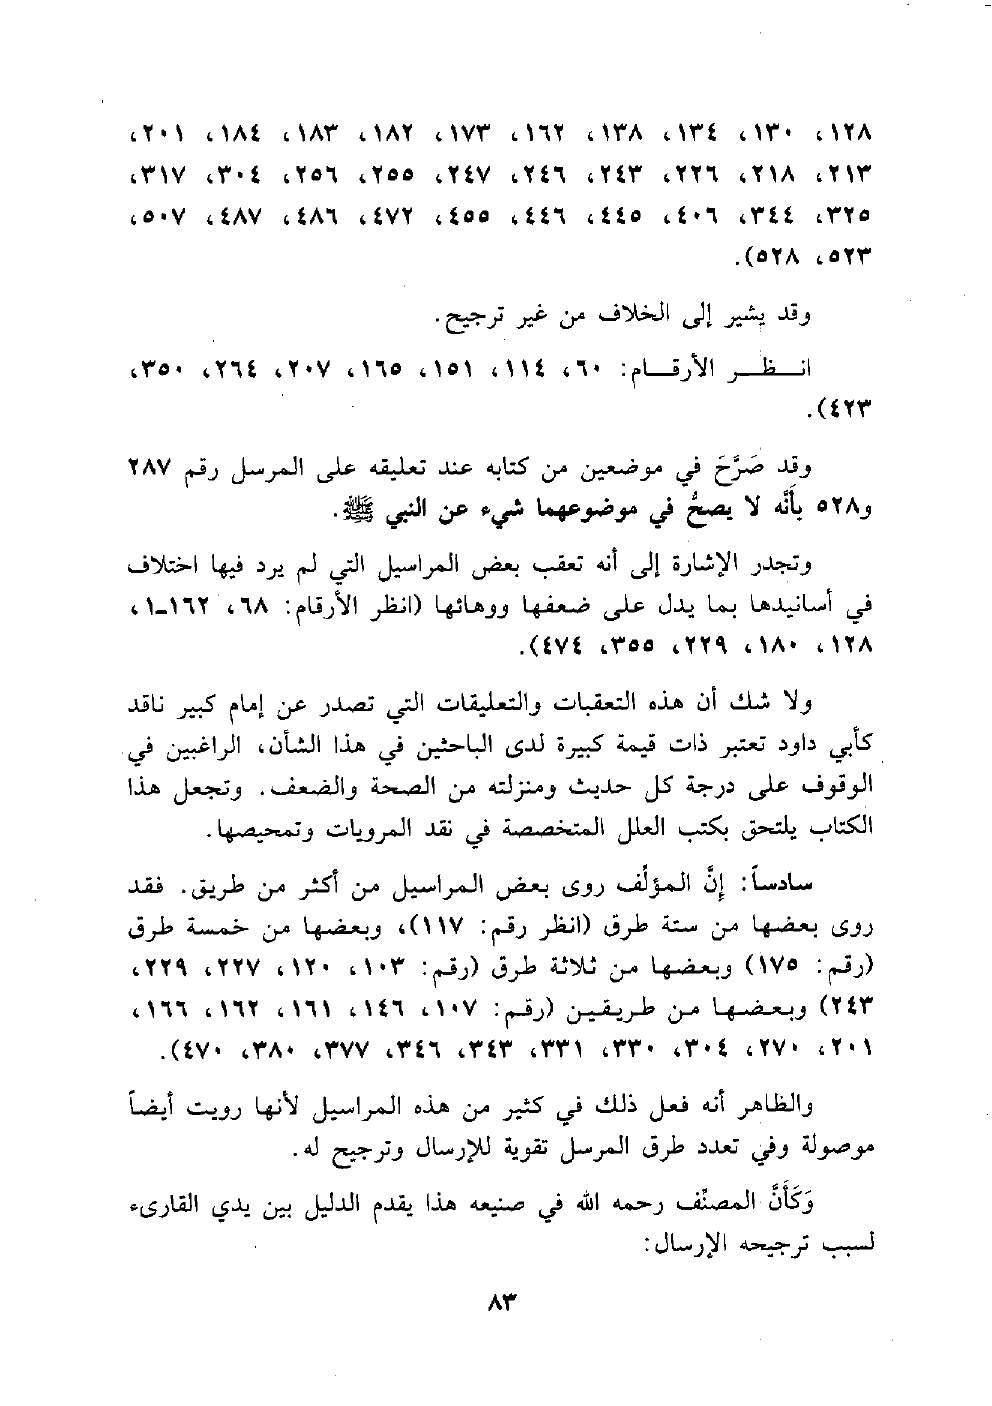 ١٢٨، ١٣٠، ١٣٤، ١٣٨، ١٦٢، ١٧٣، ١٨٢، ١٨٣، ١٨٤، ٢٠١،
٢١٣، ٢١٨، ٢٢٦، ٢٤٣، ٢٤٦، ٢٤٧، ٢٥٥، ٢٥٦، ٣٠٤، ٣١٧،
٣٢٥، ٣٤٤، ٤٠٦، ٤٤٥، ٤٤٦، ٤٥٥، ٤٧٢، ٤٨٦، ٤٨٧، ٥٠٧،
٥٢٣، ٥٢٨).
وقد يشير إلى الخلاف من غير ترجيح.
انــظــر الأرقــام: ٦٠، ١١٤، ١٥١، ١٦٥، ٢٠٧، ٢٦٤، ٣٥٠،
٤٢٣).
وقد صَرَّحَ في موضعين من كتابه عند تعليقه على المرسل رقم ٢٨٧
و٥٢٨ بأَنَّه لا يصحُّ في موضوعهما شيء عن النبي ﷺ.
وتجدر الإشارة إلى أنه تعقب بعض المراسيل التي لم يرد فيها اختلاف
في أسانيدها بما يدل على ضعفها ووهائها (انظر الأرقام: ٦٨، ١٦٢-١،
١٢٨، ١٨٠، ٢٢٩، ٣٥٥، ٤٧٤).
ولا شك أن هذه التعقبات والتعليقات التي تصدر عن إمام كبير ناقد
كأبي داود تعتبر ذات قيمة كبيرة لدى الباحثين في هذا الشأن، الراغبين في
الوقوف على درجة كل حديث ومنزلته من الصحة والضعف. وتجعل هذا
الكتاب يلتحق بكتب العلل المتخصصة في نقد المرويات وتمحيصها.
سادساً: إنَّ المؤلّف روى بعض المراسيل من أكثر من طريق. فقد
روى بعضها من ستة طرق (انظر رقم: ١١٧)، وبعضها من خمسة طرق
(رقم: ١٧٥) وبعضها من ثلاثة طرق (رقم: ١٠٣، ١٢٠، ٢٢٧، ٢٢٩،
٢٤٣) وبعضها من طريقين (رقم: ١٠٧، ١٤٦، ١٦١، ١٦٢، ١٦٦،
٢٠١، ٢٧٠، ٣٠٤، ٣٣٠، ٣٣١، ٣٤٣، ٣٤٦، ٣٧٧، ٣٨٠، ٤٧٠).
والظاهر أنه فعل ذلك في كثير من هذه المراسيل لأنها رويت أيضاً
موصولة وفي تعدد طرق المرسل تقوية للإرسال وترجيح له.
وَكَأَنَّ المصنّف رحمه الله في صنيعه هذا يقدم الدليل بين يدي القارىء
لسبب ترجيحه الإرسال:
٨٣